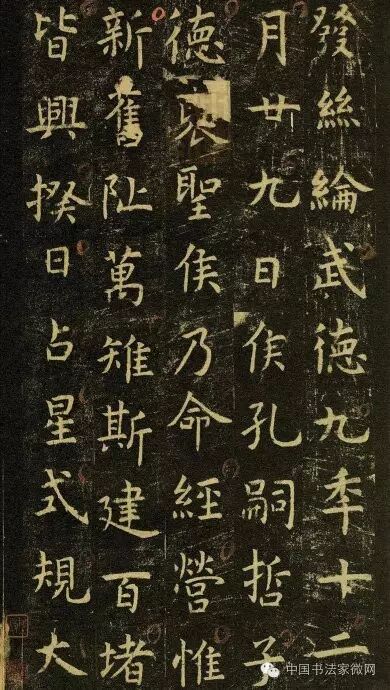 發絲綸武德九秊十二
月廿九日侯孔嗣哲子
德聖侯乃命經營惟
新舊阯萬雉斯建百堵
皆興揆日占星式規大
中国书法家微网